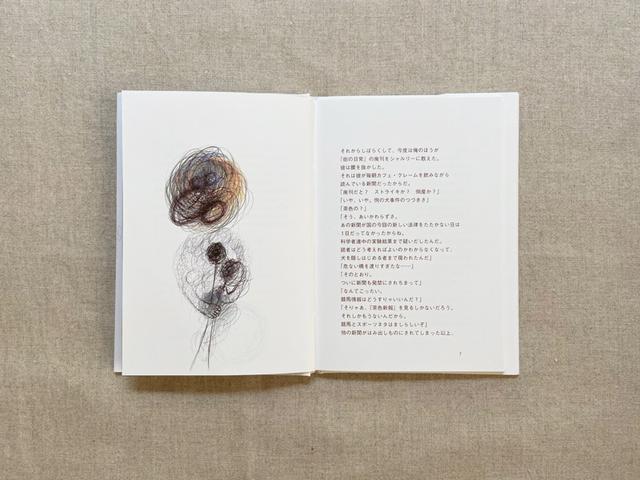 それからしばらくして、今度は俺のほうが
「街の日常」の廃刊をシャルリーに教えた。
彼は腰を抜かした。
それは彼が毎朝カフェ・クレームを飲みながら
読んでいる新聞だったからだ。
「廃刊だと？　ストライキか？　倒産か？」
「いや、いや。例の犬事件のつづきさ」
「茶色の？」
「そう、あいかわらずさ。
あの新聞が国の今回の新しい法律をたたかない日は
1日だってなかったからね。
科学者連中の実験結果まで疑いだしたんだ。
読者はどう考えればよいのかわからなくなって、
犬を隠しはじめる者まで現われたんだ」
「危ない橋を渡りすぎたな……」
「そのとおり。
ついに新聞も発禁にされちまって」
「なんてこったい。
競馬情報はどうすりゃいいんだ？」
「そりゃあ、『茶色新報』を見るしかないだろう。
それしかもうないんだから。
競馬とスポーツネタはましらしいぞ」
他の新聞がはみ出しものにされてしまった以上、
7